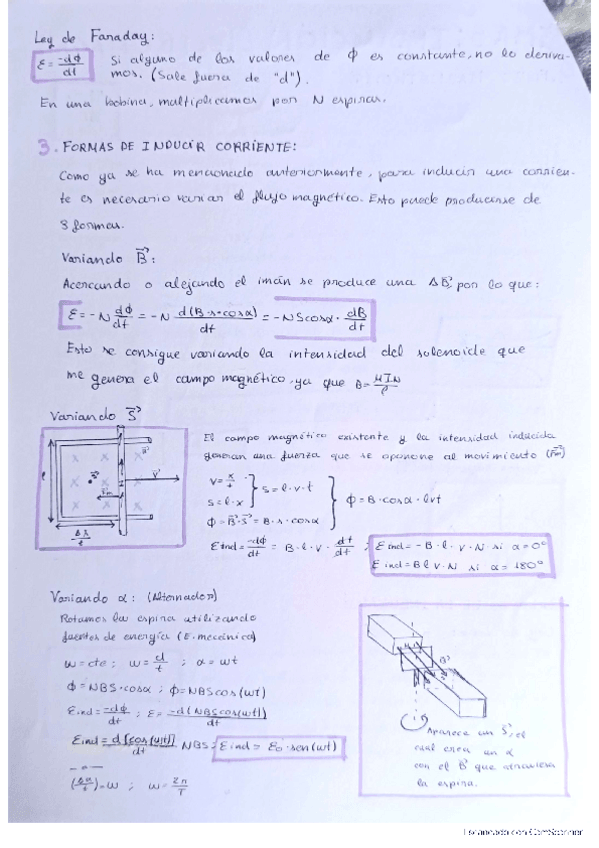 Ley de Faraday:
ε = -dϕ/dt Si alguno de los valores de ϕ es constante, no lo deriva-
mos. (Sale fuera de "d").
En una bobina, multiplicamos por N espiras.
3. FORMAS DE INDUCIR CORRIENTE:
Como ya se ha mencionado anteriormente, para inducir una corrien-
te es necesario variar el flujo magnético. Esto puede producirse de
3 formas.
Variando B⃗:
Acercando o alejando el imán se produce una ΔB⃗, por lo que:
ε = -N dϕ/dt = -N d(B·s·cosα)/dt = -NScosα · dB/dt
Esto se consigue variando la intensidad del solenoide que
me genera el campo magnético, ya que B = μIN/ℓ
Variando S⃗
El campo magnético existente y la intensidad inducida
generan una fuerza que se oponone al movimiento (F⃗m)
v = x/t
s = l·x
s = l·v·t
ϕ = B⃗·S⃗ = B·s·cosα
ϕ = B·cosα·lvt
εind = -dϕ/dt = B·l·v· dt/dt ; εind = -B·l·v·N si α = 0º
εind = B l v·N si α = 180º
Variando α: (Alternador)
Rotamos la espira utilizando
fuentes de energía (E. mecánica)
ω = cte ; ω = d/t ; α = ωt
ϕ = NBS·cosα ; ϕ = NBScos(ωt)
εind = -dϕ/dt ; ε = -d(NBScos(ωt))/dt
εind = d[cos(ωt)]/dt NBS = εind = ε₀·sen(ωt)
(Δα/t) = ω ; ω = 2π/T
B⃗
Aparece un S⃗, el
cual crea un α
con el B⃗ que atraviesa
la espira.
Escaneado con CamScanner